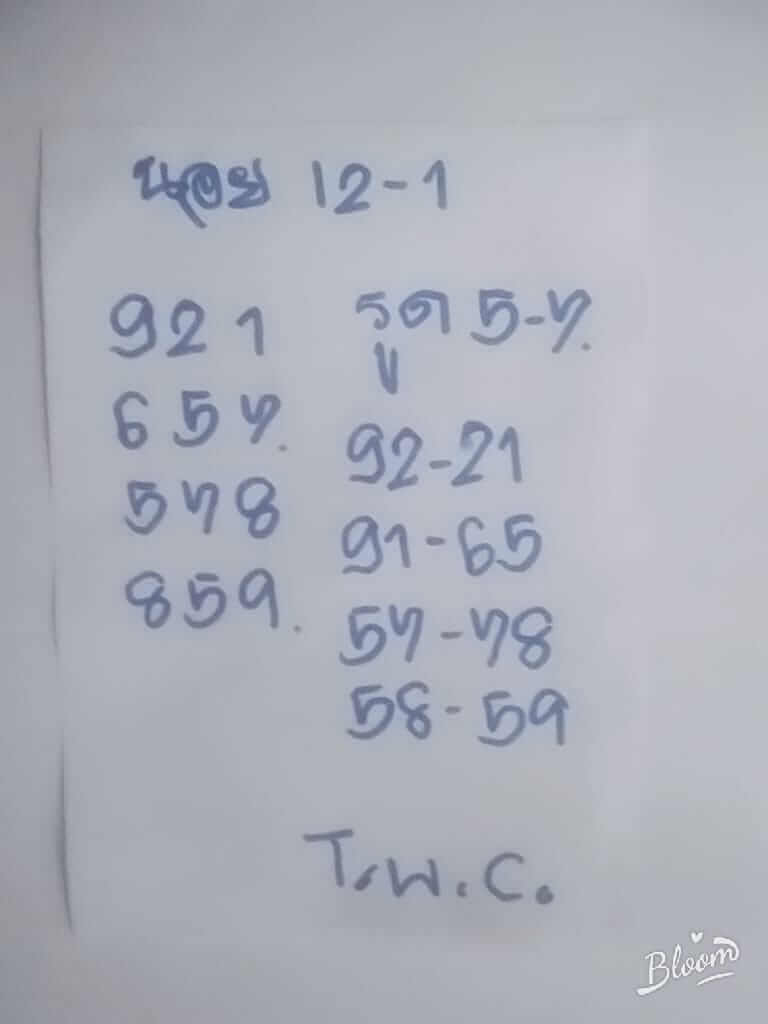 นอย 12-1
921
657.
578
859.
รูด 5-7.
92-21
91-65
57-78
58-59
T.W.C.
Bloom